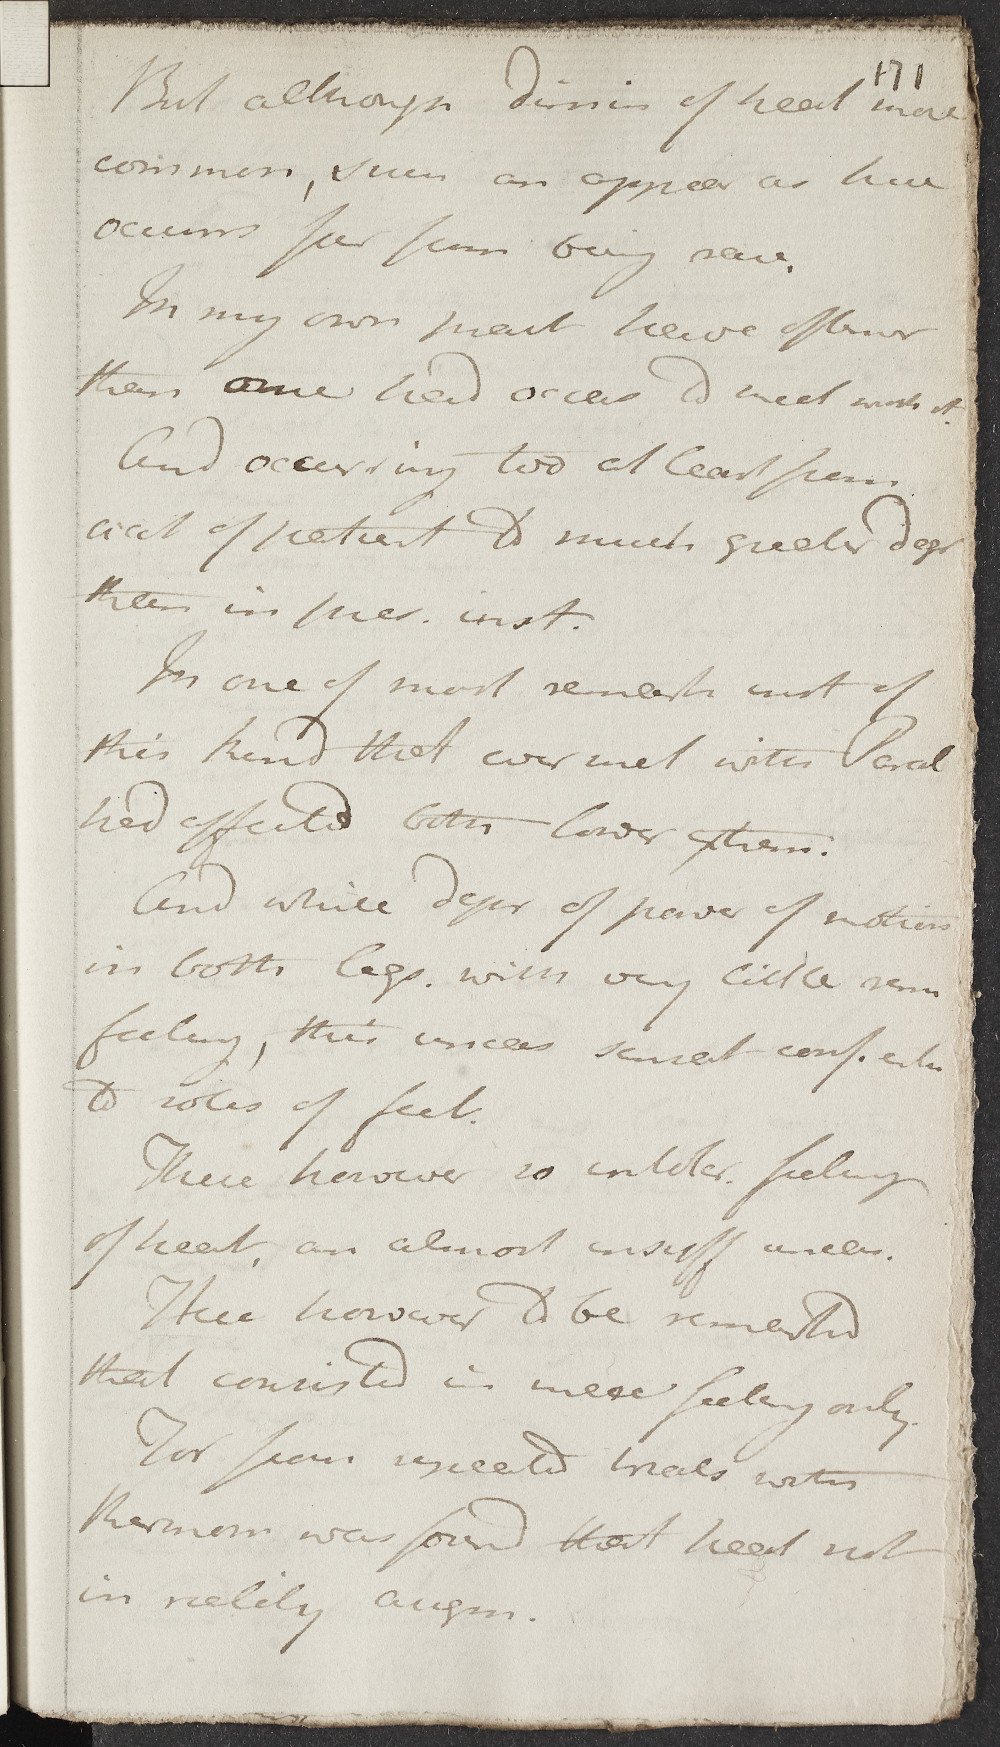 171
But although dimin of heat more
common, such an appear as here
occurrs far from being rare.
In my own pract have oftener
than once had occas to meet with it.
And occurring too at least from
acct of patient to much greater degr
than in pres. inst.
In one of most remark inst of
this kind that ever met with Paral
had affected both lower extrem.
And while degr of power of motion
in both legs. with very little rem
feeling, this uneas sensat conf.
to soles of feet.
There however so intoler. feeling
of heat, an almost insuff uneas.
Here however to be remarked
that consisted in mere feeling only.
For from repeated trials with
thermom was found that heat not
in reality augm.